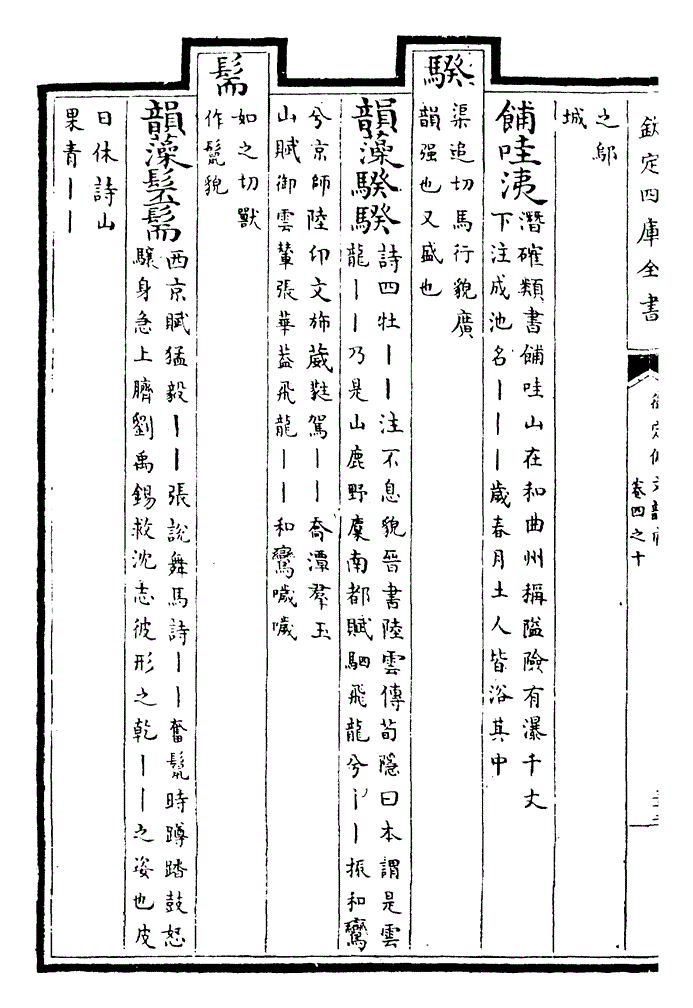 欽定四庫全書
御定佩文韻府
卷四之十
之鄔
城
餔哇洟
潛確類書餔哇山在和曲州稱隘險有瀑千丈
下注成池名丨丨丨歲春月土人皆浴其中
騤
渠追切馬行貌廣
韻强也又盛也
韻藻騤騤
詩四牡丨丨注不息貌晉書陸雲傳荀隱曰本謂是雲
龍丨丨乃是山鹿野麋南都賦駟飛龍兮丨丨振和鸞
兮京師陸卬文斾葳蕤駕丨丨喬潭羣玉
山賦御雲輦張華葢飛龍丨丨和鸞噦噦
髵
如之切獸
作鬣貌
韻藻髬髵
西京賦猛毅丨丨張說舞馬詩丨丨奮鬣時蹲踏鼓怒
驤身急上臍劉禹錫救沈志彼形之乾丨丨之姿也皮
日休詩山
果青丨丨